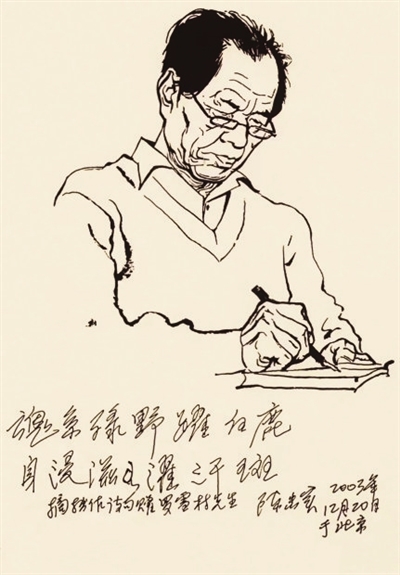 魂系绿野躍白鹿
身浸滋水濯汗斑
摘拙作诗句赠罗雪村先生 陈忠实
2003年
12月20日
于北京